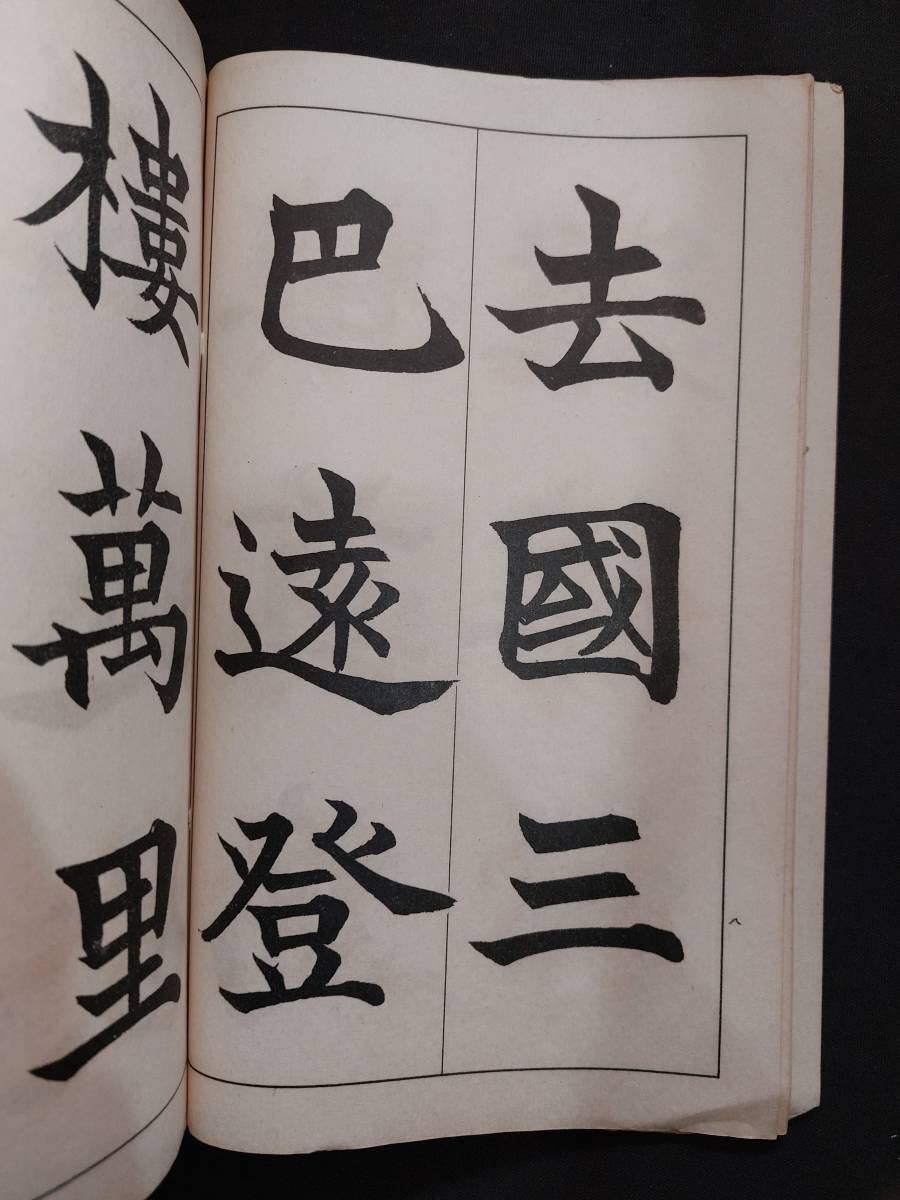 去國三
巴遠登
樓萬里